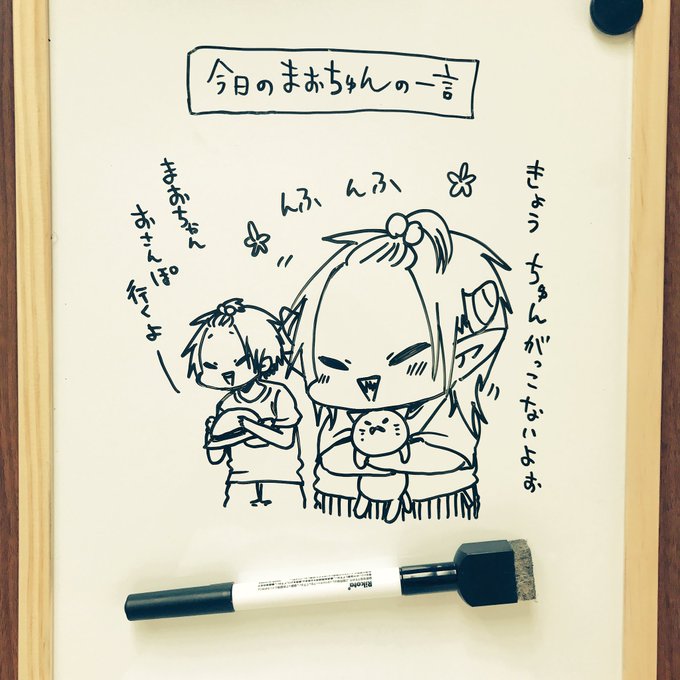 今日のまおちゅんの一言
きょう ちゅんがっこないよお
んふ んふ
まおちゃん
おさんぽ
行くよー
Rikoto